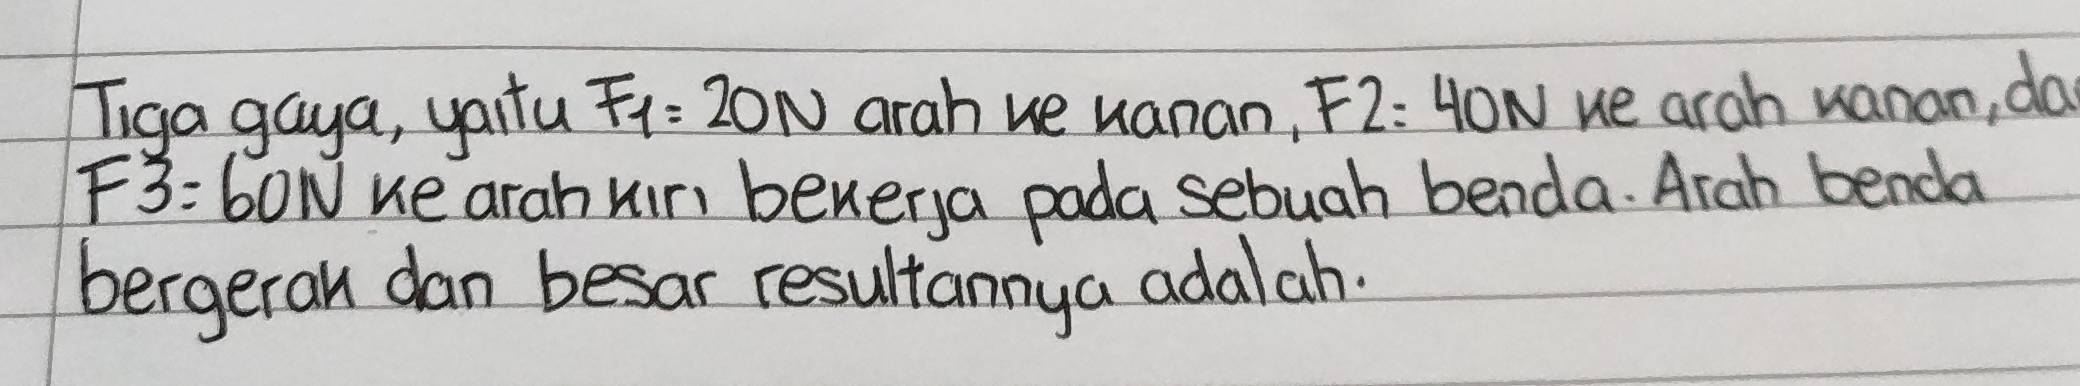 Tiga gaya, yaitu F1 = 20N arah ke kanan, F2 = 40N ke arah kanan, da
F3 = 60N ke arah kiri bekerja pada sebuah benda. Arah benda
bergerak dan besar resultannya adalah.